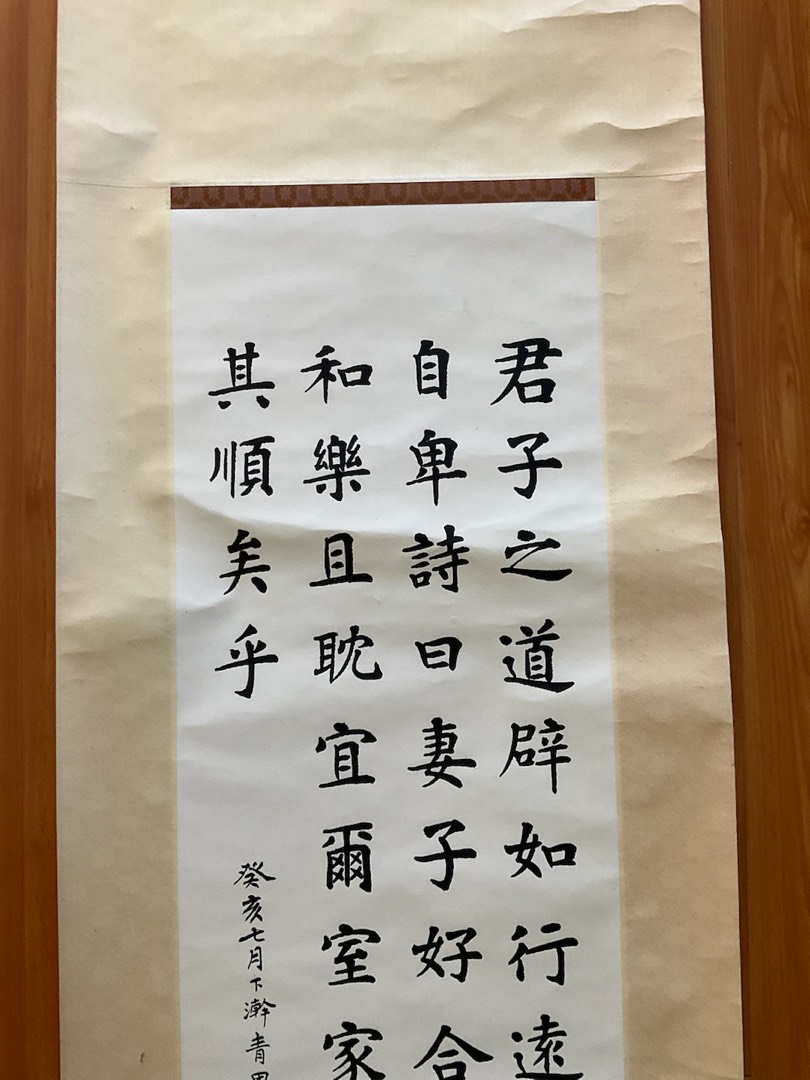 君子之道辟如行遠
自卑詩曰妻子好合
和樂且耽宜爾室家
其順矣乎
癸亥七月下澣青